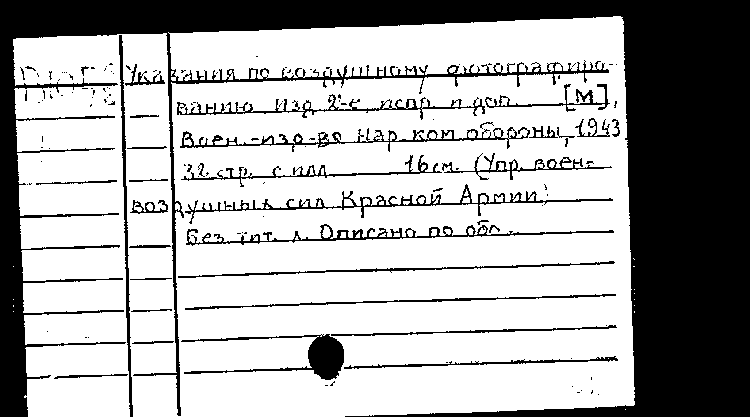 Указания по воздушному фотографиро-
ванию изд 2-е, испр. и доп. [М],
Воен.-изд-во Нар. ком. обороны, 1943
32 стр. с илл. 16 см. (Упр. воен-
воздушных сил Красной Армии)
Без тит. л. Описано по обл.